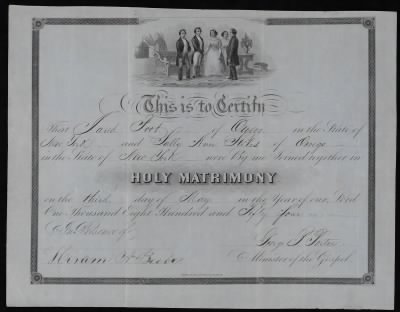 This is to Certify
That Jared Foot of Otego in the State of
New York and Sally Ann Stokes of Otego
in the State of New York were By me Joined together in
HOLY MATRIMONY
on the third day of May in the Year of our Lord
One Thousand Eight Hundred and Fifty four
In Presence of
Hiram
Minister of the Gospel